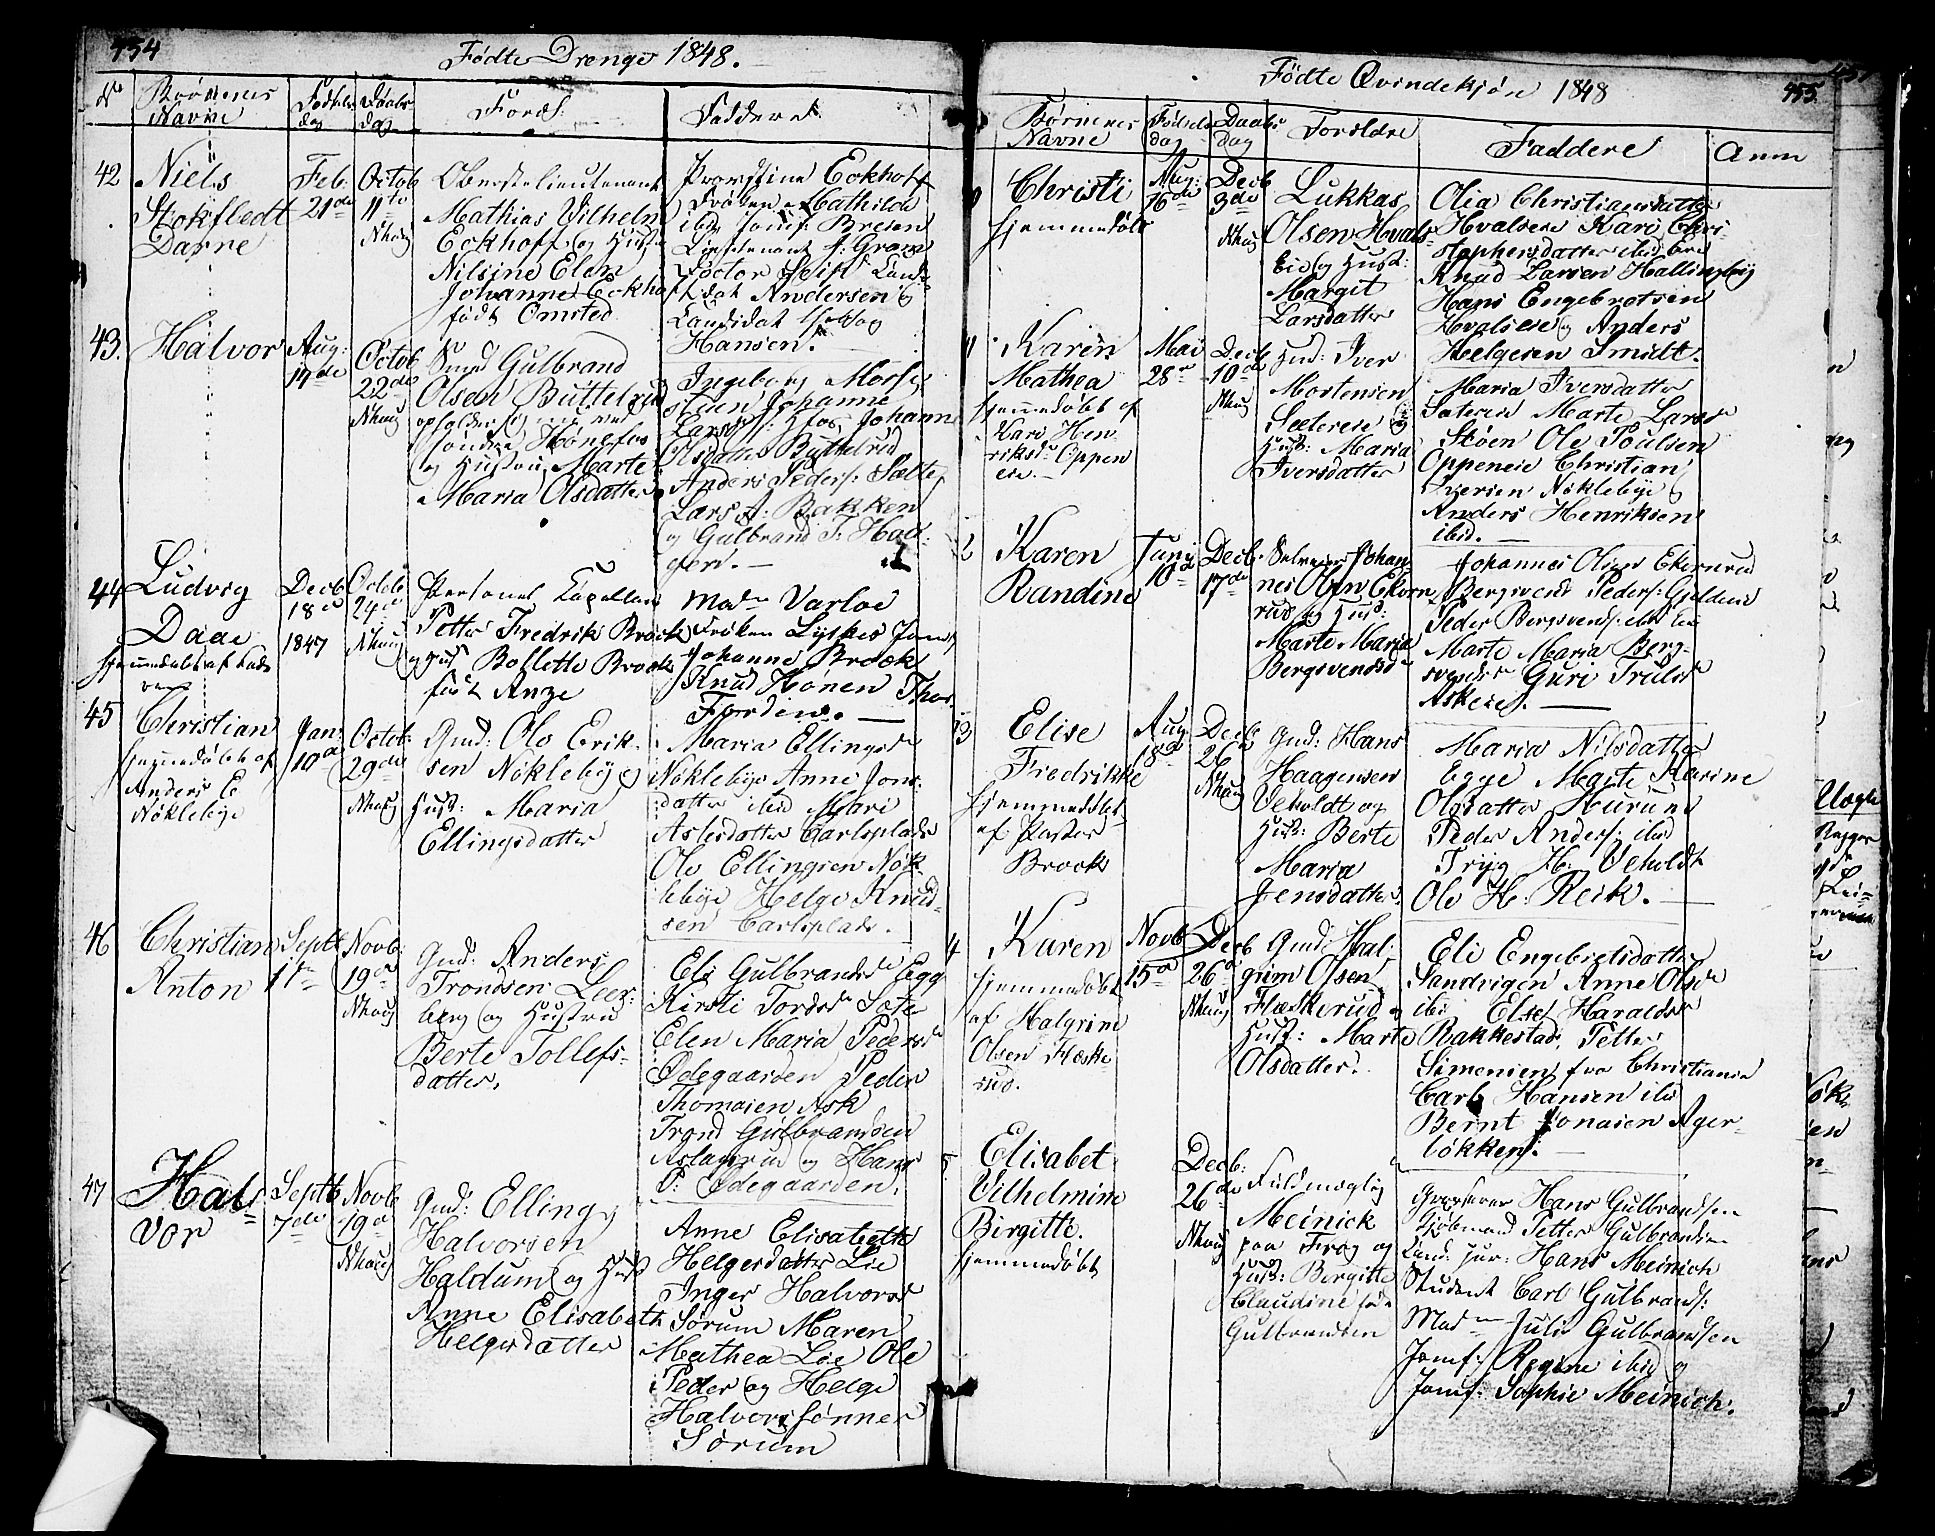 454
Fødte Drenge 1848.
No
Børnenes
Navne
Fødsels
dag
Daabs
dag
Foræl:
Faddere
42
Niels
Stokfledt
Darre
Feb:
21de
Octob
11te
Nhaug
Oberstelieutenant
Mathias Vilhelm
Eckhoff og Hustr
Nilsine Elen
Johanne Eckhoff
født Omsted
Provstine Eckhoff
Frøken Mathilde
ibid Jomf: Bresen
Lieutenant J. Gram
Doctor Heist Land-
Andersen og
Candidat
Hansen.
43.
Halvor
Aug:
14de
Octob
22de
Nhaug
Gulbrand
Olsen Buttelrud
opholder sig
søndre Hønefos
og Hustru Marte
Maria Olsdatter
Ingeborg Morse
Johanne
Larsdr: Hfos, Johanne
Olsdatter Buttelrud
Anders Peders: Sætte
Lars A: Bakken
og Gulbrand T. Had-
gen. —
44
Ludvig
Daae
hjemmedøbt af Fade
ren
Decb
18de
1847
Octob
24de
Nhaug
Personel Capellan
Petter Fredrik Brock
og Hust Bollette Brock
født Anze
Madm Varloe
Frøken Lyskes Jomf
Johanne Brock
Knud Hønen Thor
Fjorden. —
45
Christian
hjemmedøbt af
Anders E
Nøklebye
Jan:
10de
Octob:
29de
Nhaug
Gmd: Ole Erik-
sen Nøklebye og
Hust: Maria
Ellingsdatter
Maria Ellingsdr
Nøklebye Anne Jons-
datter ibid Mari
Aslesdatter Carlsplads
Ole Ellingsen Nøk-
lebye Helge Knud-
sen Carlsplads.
46
Christian
Anton
Septb
17de
Novb:
19de
Nhaug
Gmd: Anders
Trondsen Leer-
berg og Hustru
Berte Tollefs-
datter.
Eli Gulbrandsdr Egge
Kirsti Tordsdr Sæter
Elen Maria Pedersdr
Ødegaarden Peder
Thomasen Ask
Trond Gulbrandsen
Aslagrud og Hans
P: Ødegaarden.
47
Hal-
vor
Septb
7de
Novb
19de
Nhaug
Gmd: Elling
Halvorsen
Haldum og Hust
Anne Elisabeth
Helgesdatter
Anne Elisabeth
Helgesdatter Lie
Inger Halvorsdr
Sørum Maren
Mathea Lie Ole
Peder og Helge
Halvorssønner
Sørum
Fødte Qvindekjøn 1848
455
Børnenes
Navne
Fødsels
dag
Daabs
dag
Forældre
Faddere
Anm
Christi
hjemmedøbt
Aug:
16de
Decb
3de
Nhaug
Lukkas
Olsen Hvals-
eie og Hust:
Margit
Larsdatter
Olia Christiansdatter
Hvalseie Kari Chri-
stophersdatter ibid
Knud Larsen Hallingby
Hans Engebretsen
Hvalseie og Anders
Helgesen Smidt.
Karen
Mathea
hjemmedøbt af
Kari Hen
riksdr Oppen
eie. —
Mai
28de
Decb
10de
Nhaug
Hmd: Iver
Mortensen
Sætereie og
Hust: Maria
Iversdatter
Maria Iversdatter
Sætereie Marte Larsdr
Støen Ole Poulsen
Oppeneie Christian
Iversen Nøklebye og
Anders Henriksen
ibid. —
2
Karen
Randine
Juny
10de
Decb:
17de
Selveier Johan-
nes Olsen Ekorn
rud og Hust:
Marte Maria
Bergsvendsdr
Johannes Olsen Ekornrud
Bergsvend Peders: Gjeldeie
Peder Bergsvends: ibid
Marte Maria Berg-
svendsdr Guri Trulsdr
Askeie. —
3
Elise
Fredrikke
hjemmedøbt
af Pastor
Brock
Aug
18de
Decb
26
Nhaug
Gmd: Hans
Haagensen
Veholdt og
Hust: Berte
Maria
Jensdatter
Maria Nilsdatter
Egge Marte Karine
Olsdatter Hurum
Peder Anders: ibid
Tryg H: Veholdt
Ole H: Reik. —
4
Karen
hjemmedøbt
af Halgrim
Olsen Flæske-
rud.
Novb
15de
Decb
26de
Nhaug
Gmd: Hal-
grim Olsen
Flæskerud og
Hust: Marte
Olsdatter.
Eli Engebretsdatter
Sandvigen Anne Olsdr
ibid Else Haraldsdr
Rakkestad, Petter
Simensen fra Christiania
Carl Hansen ibid
Bernt Jonasen Ager-
løkken. —
5
Elisabet
Vilhelmine
Birgitte.
hjemmedøbt
Decb:
26de
Nhaug
Fuldmægtig
Meinick
paa Frog og
Hust: Bergitte
Claudine fød
Gulbrandsen
Grosserer Hans Gulbrandsen
Kjøbmand Petter Gulbrandsen
Cand: jur: Hans Meinich
Student Carl Gulbrands:
Madm Julie Gulbrandsen
Jomf: Regine ibid og
Jomf: Sophie Meinich.